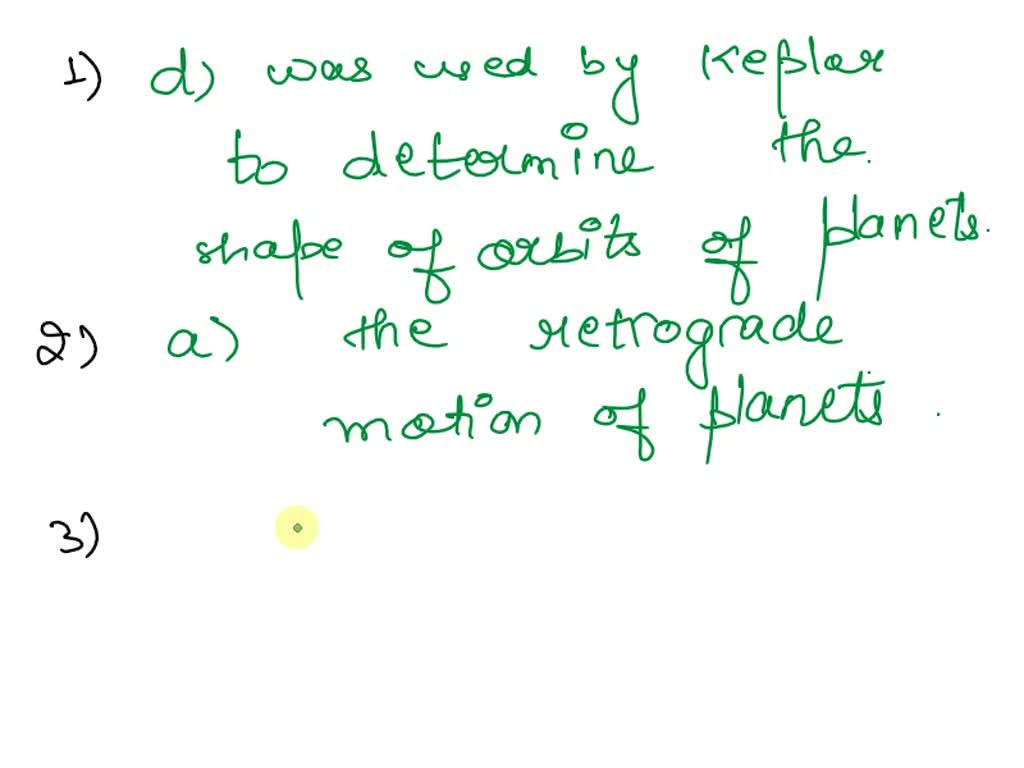 1) d) was used by Keplar
to determine the.
shape of orbits of planets.
2) a) the retrograde
motion of planets.
3)